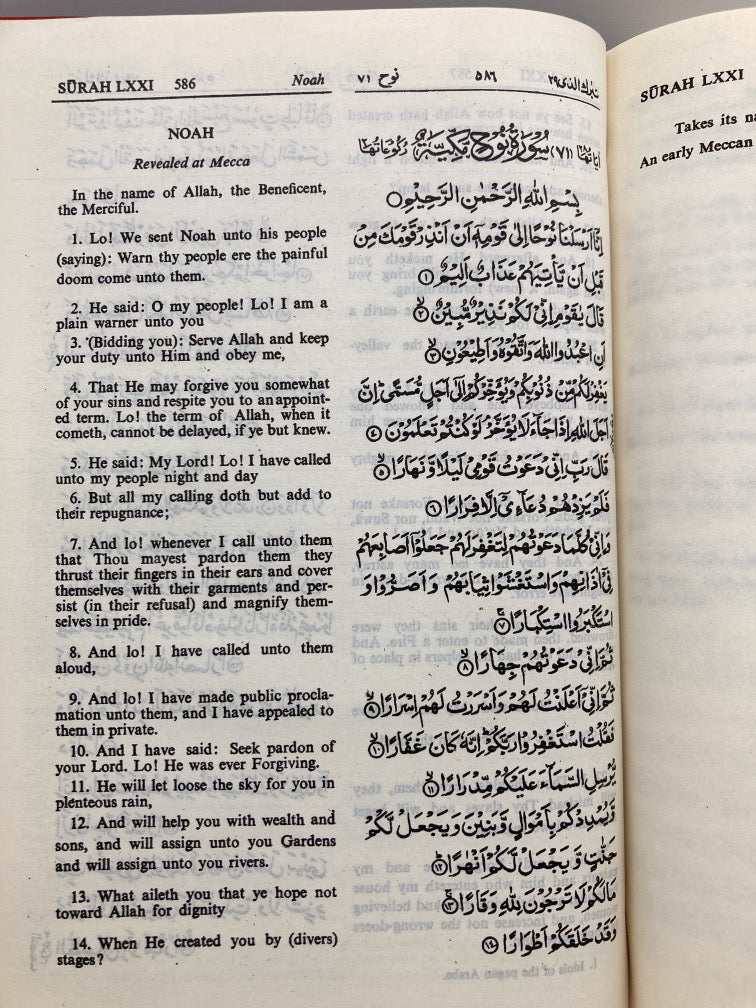 SŪRAH LXXI 586 Noah
NOAH
Revealed at Mecca
In the name of Allah, the Beneficent,
the Merciful.
1. Lo! We sent Noah unto his people
(saying): Warn thy people ere the painful
doom come unto them.
2. He said: O my people! Lo! I am a
plain warner unto you
3. (Bidding you): Serve Allah and keep
your duty unto Him and obey me,
4. That He may forgive you somewhat
of your sins and respite you to anappoint-
ed term. Lo! the term of Allah, when it
cometh, cannot be delayed, if ye but knew.
5. He said: My Lord! Lo! I have called
unto my people night and day
6. But all my calling doth but add to
their repugnance;
7. And lo! whenever I call unto them
that Thou mayest pardon them they
thrust their fingers in their ears and cover
themselves with their garments and per-
sist (in their refusal) and magnify them-
selves in pride.
8. And lo! I have called unto them
aloud,
9. And lo! I have made public procla-
mation unto them, and I have appealed to
them in private.
10. And I have said: Seek pardon of
your Lord. Lo! He was ever Forgiving.
11. He will let loose the sky for you in
plenteous rain,
12. And will help you with wealth and
sons, and will assign unto you Gardens
and will assign unto you rivers.
13. What aileth you that ye hope not
toward Allah for dignity
14. When He created you by (divers)
stages?
تبرك الذى ٢٩ ٥٨٦ نوح ٧١
اياتها (٧١) سُوْرَةُ نُوْحٍ مَّكِّيَّةٌ رکوعاتها
بِسْمِ اللهِ الرَّحْمٰنِ الرَّحِيْمِ
اِنَّآ اَرْسَلْنَا نُوْحًا اِلٰى قَوْمِهٖٓ اَنْ اَنْذِرْ قَوْمَكَ مِنْ
قَبْلِ اَنْ يَّاْتِيَهُمْ عَذَابٌ اَلِيْمٌ ١
قَالَ يٰقَوْمِ اِنِّيْ لَكُمْ نَذِيْرٌ مُّبِيْنٌ ٢
اَنِ اعْبُدُوا اللهَ وَاتَّقُوْهُ وَاَطِيْعُوْنِ ٣
يَغْفِرْ لَكُمْ مِّنْ ذُنُوْبِكُمْ وَيُؤَخِّرْكُمْ اِلٰٓى اَجَلٍ مُّسَمًّى اِنَّ
اَجَلَ اللهِ اِذَا جَآءَ لَا يُؤَخَّرُ لَوْ كُنْتُمْ تَعْلَمُوْنَ ٤
قَالَ رَبِّ اِنِّيْ دَعَوْتُ قَوْمِيْ لَيْلًا وَّنَهَارًا ٥
فَلَمْ يَزِدْهُمْ دُعَآءِيْٓ اِلَّا فِرَارًا ٦
وَاِنِّيْ كُلَّمَا دَعَوْتُهُمْ لِتَغْفِرَ لَهُمْ جَعَلُوْٓا اَصَابِعَهُمْ
فِيْٓ اٰذَانِهِمْ وَاسْتَغْشَوْا ثِيَابَهُمْ وَاَصَرُّوْا وَ
اسْتَكْبَرُوا اسْتِكْبَارًا ٧
ثُمَّ اِنِّيْ دَعَوْتُهُمْ جِهَارًا ٨
ثُمَّ اِنِّيْٓ اَعْلَنْتُ لَهُمْ وَاَسْرَرْتُ لَهُمْ اِسْرَارًا ٩
فَقُلْتُ اسْتَغْفِرُوْا رَبَّكُمْ اِنَّهٗ كَانَ غَفَّارًا ١٠
يُّرْسِلِ السَّمَآءَ عَلَيْكُمْ مِّدْرَارًا ١١
وَّيُمْدِدْكُمْ بِاَمْوَالٍ وَّبَنِيْنَ وَيَجْعَلْ لَّكُمْ
جَنّٰتٍ وَّيَجْعَلْ لَّكُمْ اَنْهٰرًا ١٢
مَا لَكُمْ لَا تَرْجُوْنَ لِلهِ وَقَارًا ١٣
وَقَدْ خَلَقَكُمْ اَطْوَارًا ١٤
SŪRAH LXXI
Takes its
An early Meccan